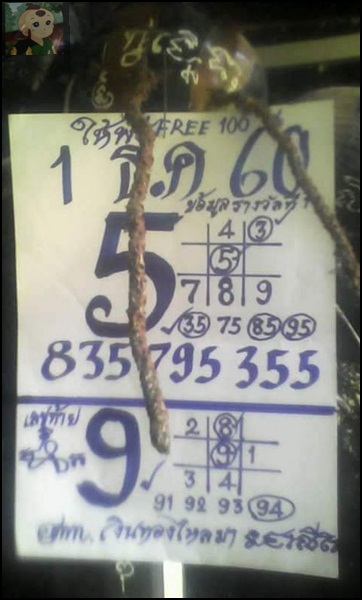 FREE 100
1 ธ.ค 60
ข้อมูลรางวัลที่ 1
5
4 3
5
7 8 9
35 75 85 95
835 795 355
เลขท้าย
9
2 8
9 1
3 4
91 92 93 94
เงินทองไหลมา